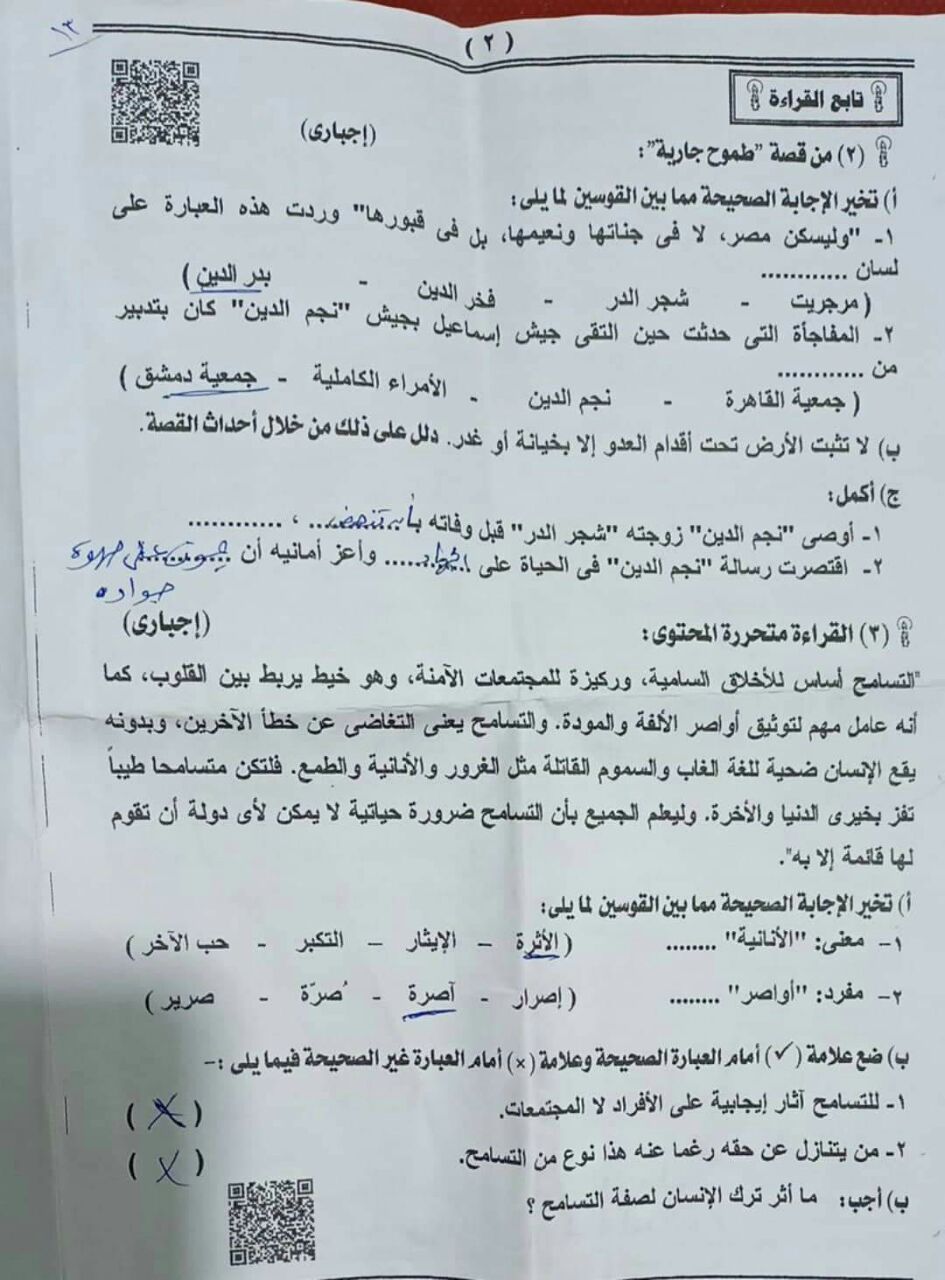 ١٣
(٢)
تابع القراءة
(٢) من قصة "طموح جارية":
(إجبارى)
أ) تخير الإجابة الصحيحة مما بين القوسين لما يلى:
١- "وليسكن مصر، لا فى جناتها ونعيمها، بل فى قبورها" وردت هذه العبارة على
لسان ............
( مرجريت - شجر الدر - فخر الدين - بدر الدين )
٢- المفاجأة التى حدثت حين التقى جيش إسماعيل بجيش "نجم الدين" كان بتدبير
من ............
( جمعية القاهرة - نجم الدين - الأمراء الكاملية - جمعية دمشق )
ب) لا تثبت الأرض تحت أقدام العدو إلا بخيانة أو غدر. دلل على ذلك من خلال أحداث القصة.
ج) أكمل:
١- أوصى "نجم الدين" زوجته "شجر الدر" قبل وفاته بـ ....... ، ............
٢- اقتصرت رسالة "نجم الدين" فى الحياة على الجهاد ...... وأعز أمانيه أن يموت على صهوة
جواده
(٣) القراءة متحررة المحتوى:
(إجبارى)
"التسامح أساس للأخلاق السامية، وركيزة للمجتمعات الآمنة، وهو خيط يربط بين القلوب، كما
أنه عامل مهم لتوثيق أواصر الألفة والمودة. والتسامح يعنى التغاضى عن خطأ الآخرين، وبدونه
يقع الإنسان ضحية للغة الغاب والسموم القاتلة مثل الغرور والأنانية والطمع. فلتكن متسامحا طيباً
تفز بخيرى الدنيا والأخرة. وليعلم الجميع بأن التسامح ضرورة حياتية لا يمكن لأى دولة أن تقوم
لها قائمة إلا به".
أ) تخير الإجابة الصحيحة مما بين القوسين لما يلى:
١- معنى: "الأنانية" ........ ( الأثرة - الإيثار - التكبر - حب الآخر )
٢- مفرد: "أواصر" ........ ( إصرار - آصرة - صُرّة - صرير )
ب) ضع علامة (✓) أمام العبارة الصحيحة وعلامة (×) أمام العبارة غير الصحيحة فيما يلى :-
١- للتسامح آثار إيجابية على الأفراد لا المجتمعات. (X)
٢- من يتنازل عن حقه رغما عنه هذا نوع من التسامح. (X)
ب) أجب: ما أثر ترك الإنسان لصفة التسامح ؟